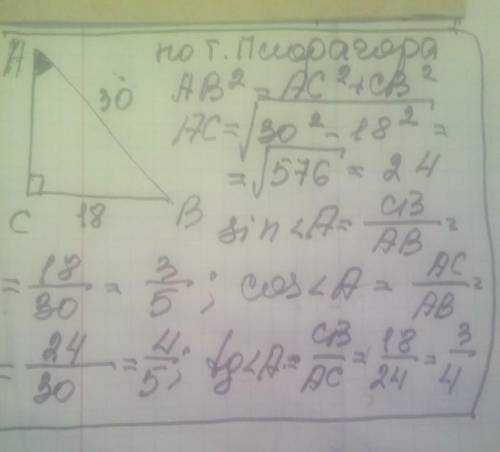 по т. Пифагора
A
30
C
18
B
AB² = AC² + CB²
AC = √30² - 18² =
= √576 = 24
sin∠A = CB/AB =
= 18/30 = 3/5; cos∠A = AC/AB =
= 24/30 = 4/5; tg∠A = CB/AC = 18/24 = 3/4